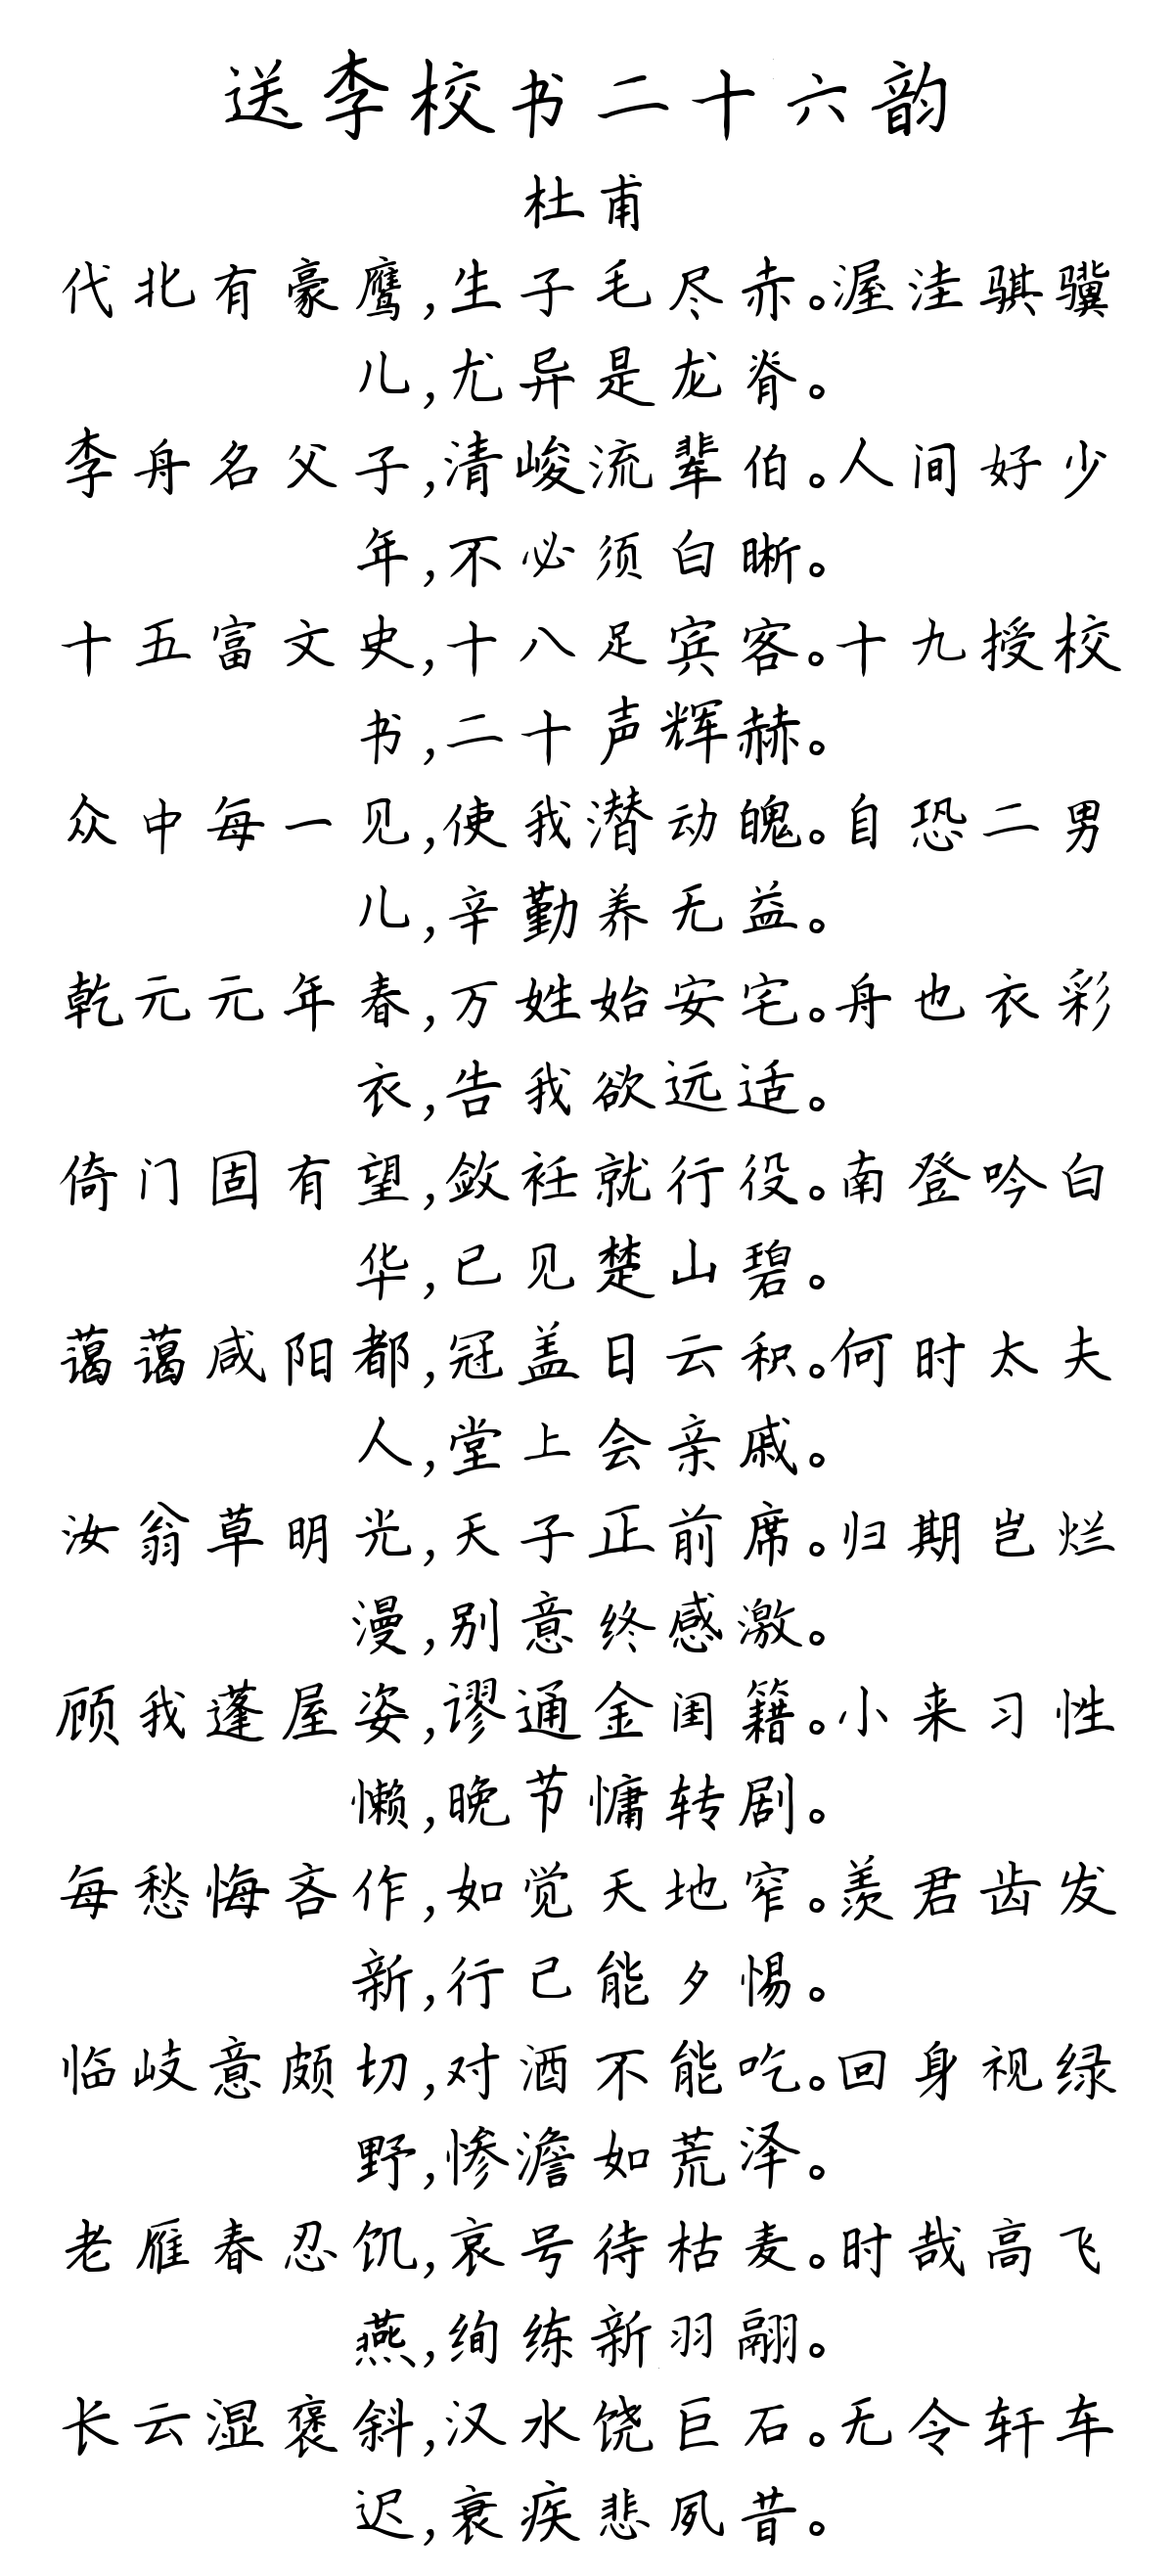 送李校书二十六韵
杜甫
代北有豪鹰,生子毛尽赤。渥洼骐骥
儿,尤异是龙脊。
李舟名父子,清峻流辈伯。人间好少
年,不必须白晰。
十五富文史,十八足宾客。十九授校
书,二十声辉赫。
众中每一见,使我潜动魄。自恐二男
儿,辛勤养无益。
乾元元年春,万姓始安宅。舟也衣彩
衣,告我欲远适。
倚门固有望,敛衽就行役。南登吟白
华,已见楚山碧。
蔼蔼咸阳都,冠盖日云积。何时太夫
人,堂上会亲戚。
汝翁草明光,天子正前席。归期岂烂
漫,别意终感激。
顾我蓬屋姿,谬通金闺籍。小来习性
懒,晚节慵转剧。
每愁悔吝作,如觉天地窄。羡君齿发
新,行己能夕惕。
临岐意颇切,对酒不能吃。回身视绿
野,惨澹如荒泽。
老雁春忍饥,哀号待枯麦。时哉高飞
燕,绚练新羽翮。
长云湿褒斜,汉水饶巨石。无令轩车
迟,衰疾悲夙昔。